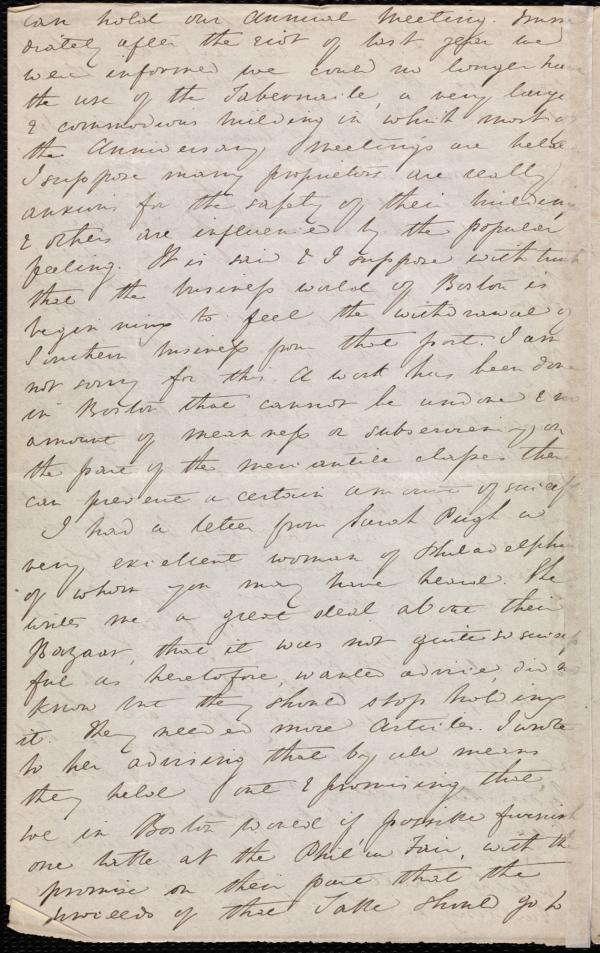 can hold our Annual Meeting. Imm
diately after the riot of last year we
were informed we could no longer have
the use of the Tabernacle, a very large
& commodious building in which most of
the Anniversary meetings are held
I suppose many proprietors are really
anxious for the safety of their building
& others are influenced by the popular
feeling. It is said & I suppose with truth
that the business world of Boston is
beginning to feel the withdrawal of
Southern business from that port. I am
not sorry for this. A work has been done
in Boston that cannot be undone & no
amount of meanness or subserviency on
the part of the mercantile classes there
can prevent a certain amount of
I had a letter from Sarah Pugh a
very excellent woman of Philadelphia
of whom you may have heard. She
writes me a great deal about their
Bazaar, that it was not quite so success
ful as heretofore, wanted advice, did n
know but they should stop holding
it. They needed more Articles. I wrote
to her advising that by all means
they held one & promising that
we in Boston would if possible furnish
one table at the Phil'an Fair, with the
promise on their part that the
proceeds of that Table should go to